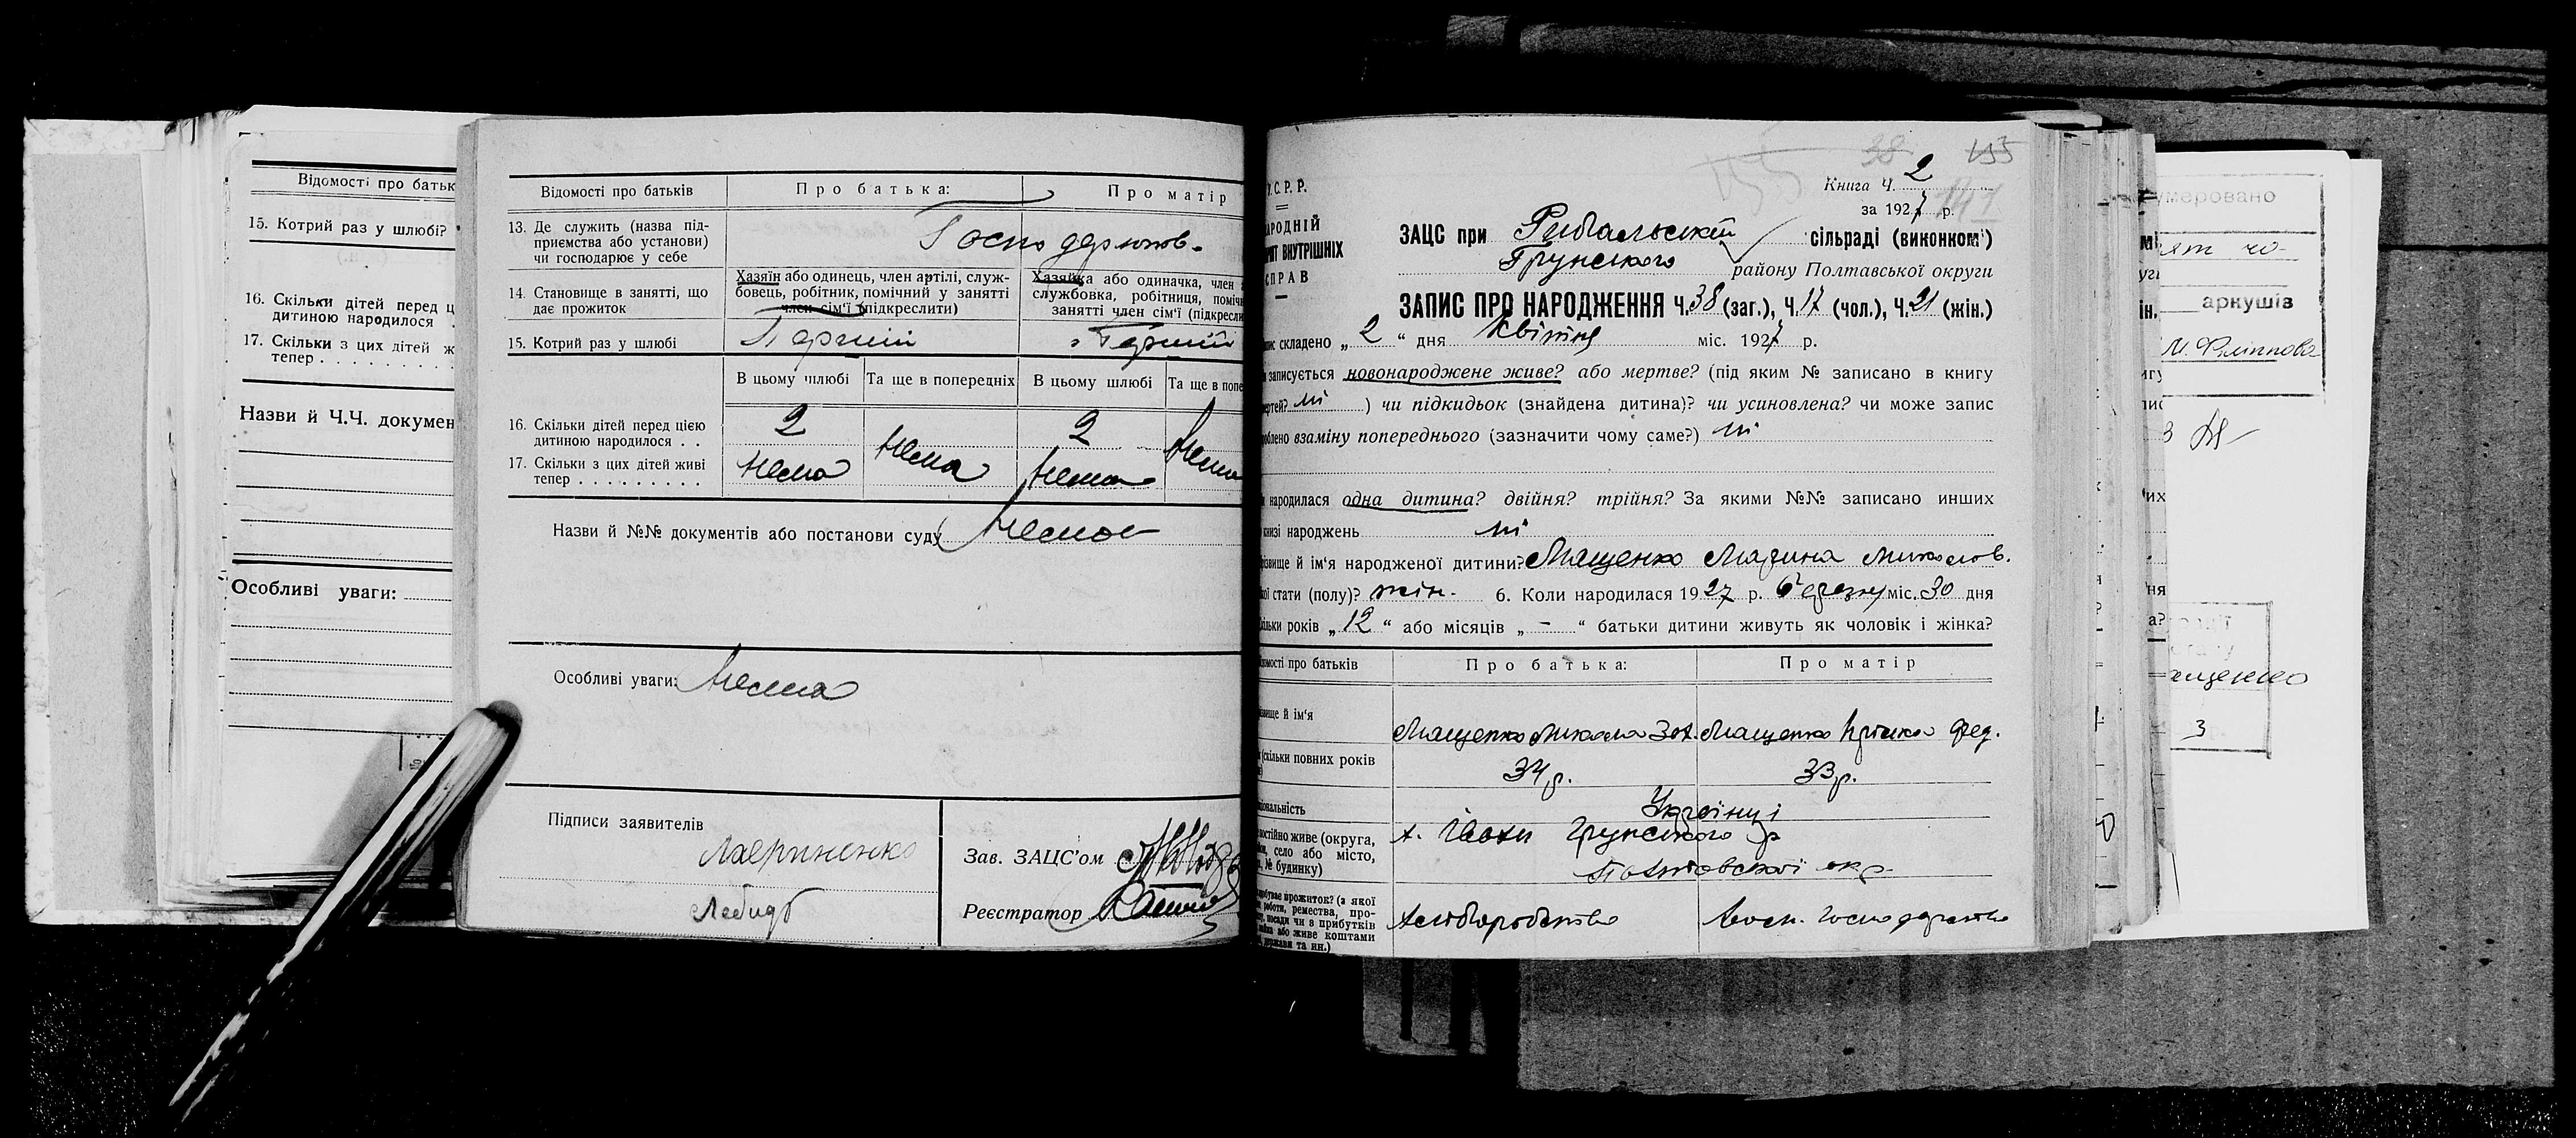 Відомості про батьк
15. Котрий раз у шлюбі?
16. Скільки дітей перед ц
дитиною народилося .
17. Скільки з цих дітей ж
тепер . . . . . . . .
Назви й Ч.Ч. докумен
Особливі уваги:
Відомості про батьків
Про батька:
Про матір
13. Де служить (назва під-
приємства або установи)
чи господарює у себе
Господарюють-
14. Становище в занятті, що
дає прожиток
Хазяїн або одинець, член артілі, служ-
бовець, робітник, помічний у занятті
член сім'ї (підкреслити)
Хазяйка або одиначка, член
службовка, робітниця, поміч
занятті член сім'ї (підкресли
15. Котрий раз у шлюбі
Перший
Перший
В цьому шлюбі
Та ще в попередніх
В цьому шлюбі
Та ще в попе
16. Скільки дітей перед цією
дитиною народилося . .
2
Нема
2
Нема
17. Скільки з цих дітей живі
тепер . . . . . . . . .
Нема
Нема
Назви й №№ документів або постанови суду Немає
Особливі уваги: Нема
Підписи заявителів
Лебидь
Зав. ЗАЦС'ом
Реєстратор
38 155
Книга Ч. 2
за 1927 р. 141
У.С.Р.Р.
АРОДНІЙ
ВНУТРІШНІХ
СПРАВ
ЗАЦС при Рибальській сільраді (виконком')
Грунського району Полтавської округи
ЗАПИС ПРО НАРОДЖЕННЯ Ч. 38 (заг.), Ч. 17 (чол.), Ч. 21 (жін.)
пис складено „ 2 “ дня Квітня міс. 1927 р.
записується новонароджене живе? або мертве? (під яким № записано в книгу
ертей? ні ) чи підкидьок (знайдена дитина)? чи усиновлена? чи може запис
облено взаміну попереднього (зазначити чому саме?) ні
народилася одна дитина? двійня? трійня? За якими №№ записано инших
книзі народжень ні
різвище й ім'я народженої дитини? Мащенко Марина Миколов.
кої стати (полу)? жін. 6. Коли народилася 1927 р. березня міс. 30 дня
кільки років „ 12 “ або місяців „ - “ батьки дитини живуть як чоловік і жінка?
омості про батьків
Про батька:
Про матір
звище й ім'я
Мащенко Микола Зот.
Мащенко Прiська Фед.
(скільки повних років
34 р.
33 р.
ціональність
Українці
постійно живе (округа,
село або місто,
№ будинку)
х. Грунського р
Полтавської окр.
добуває прожиток? (з якої
роботи, ремества, про-
посади чи в прибутків
або живе коштами
держави та ин.)
Хліборобство
господарство
умеровано
аркушів
М. Філіппова
ащенко
3